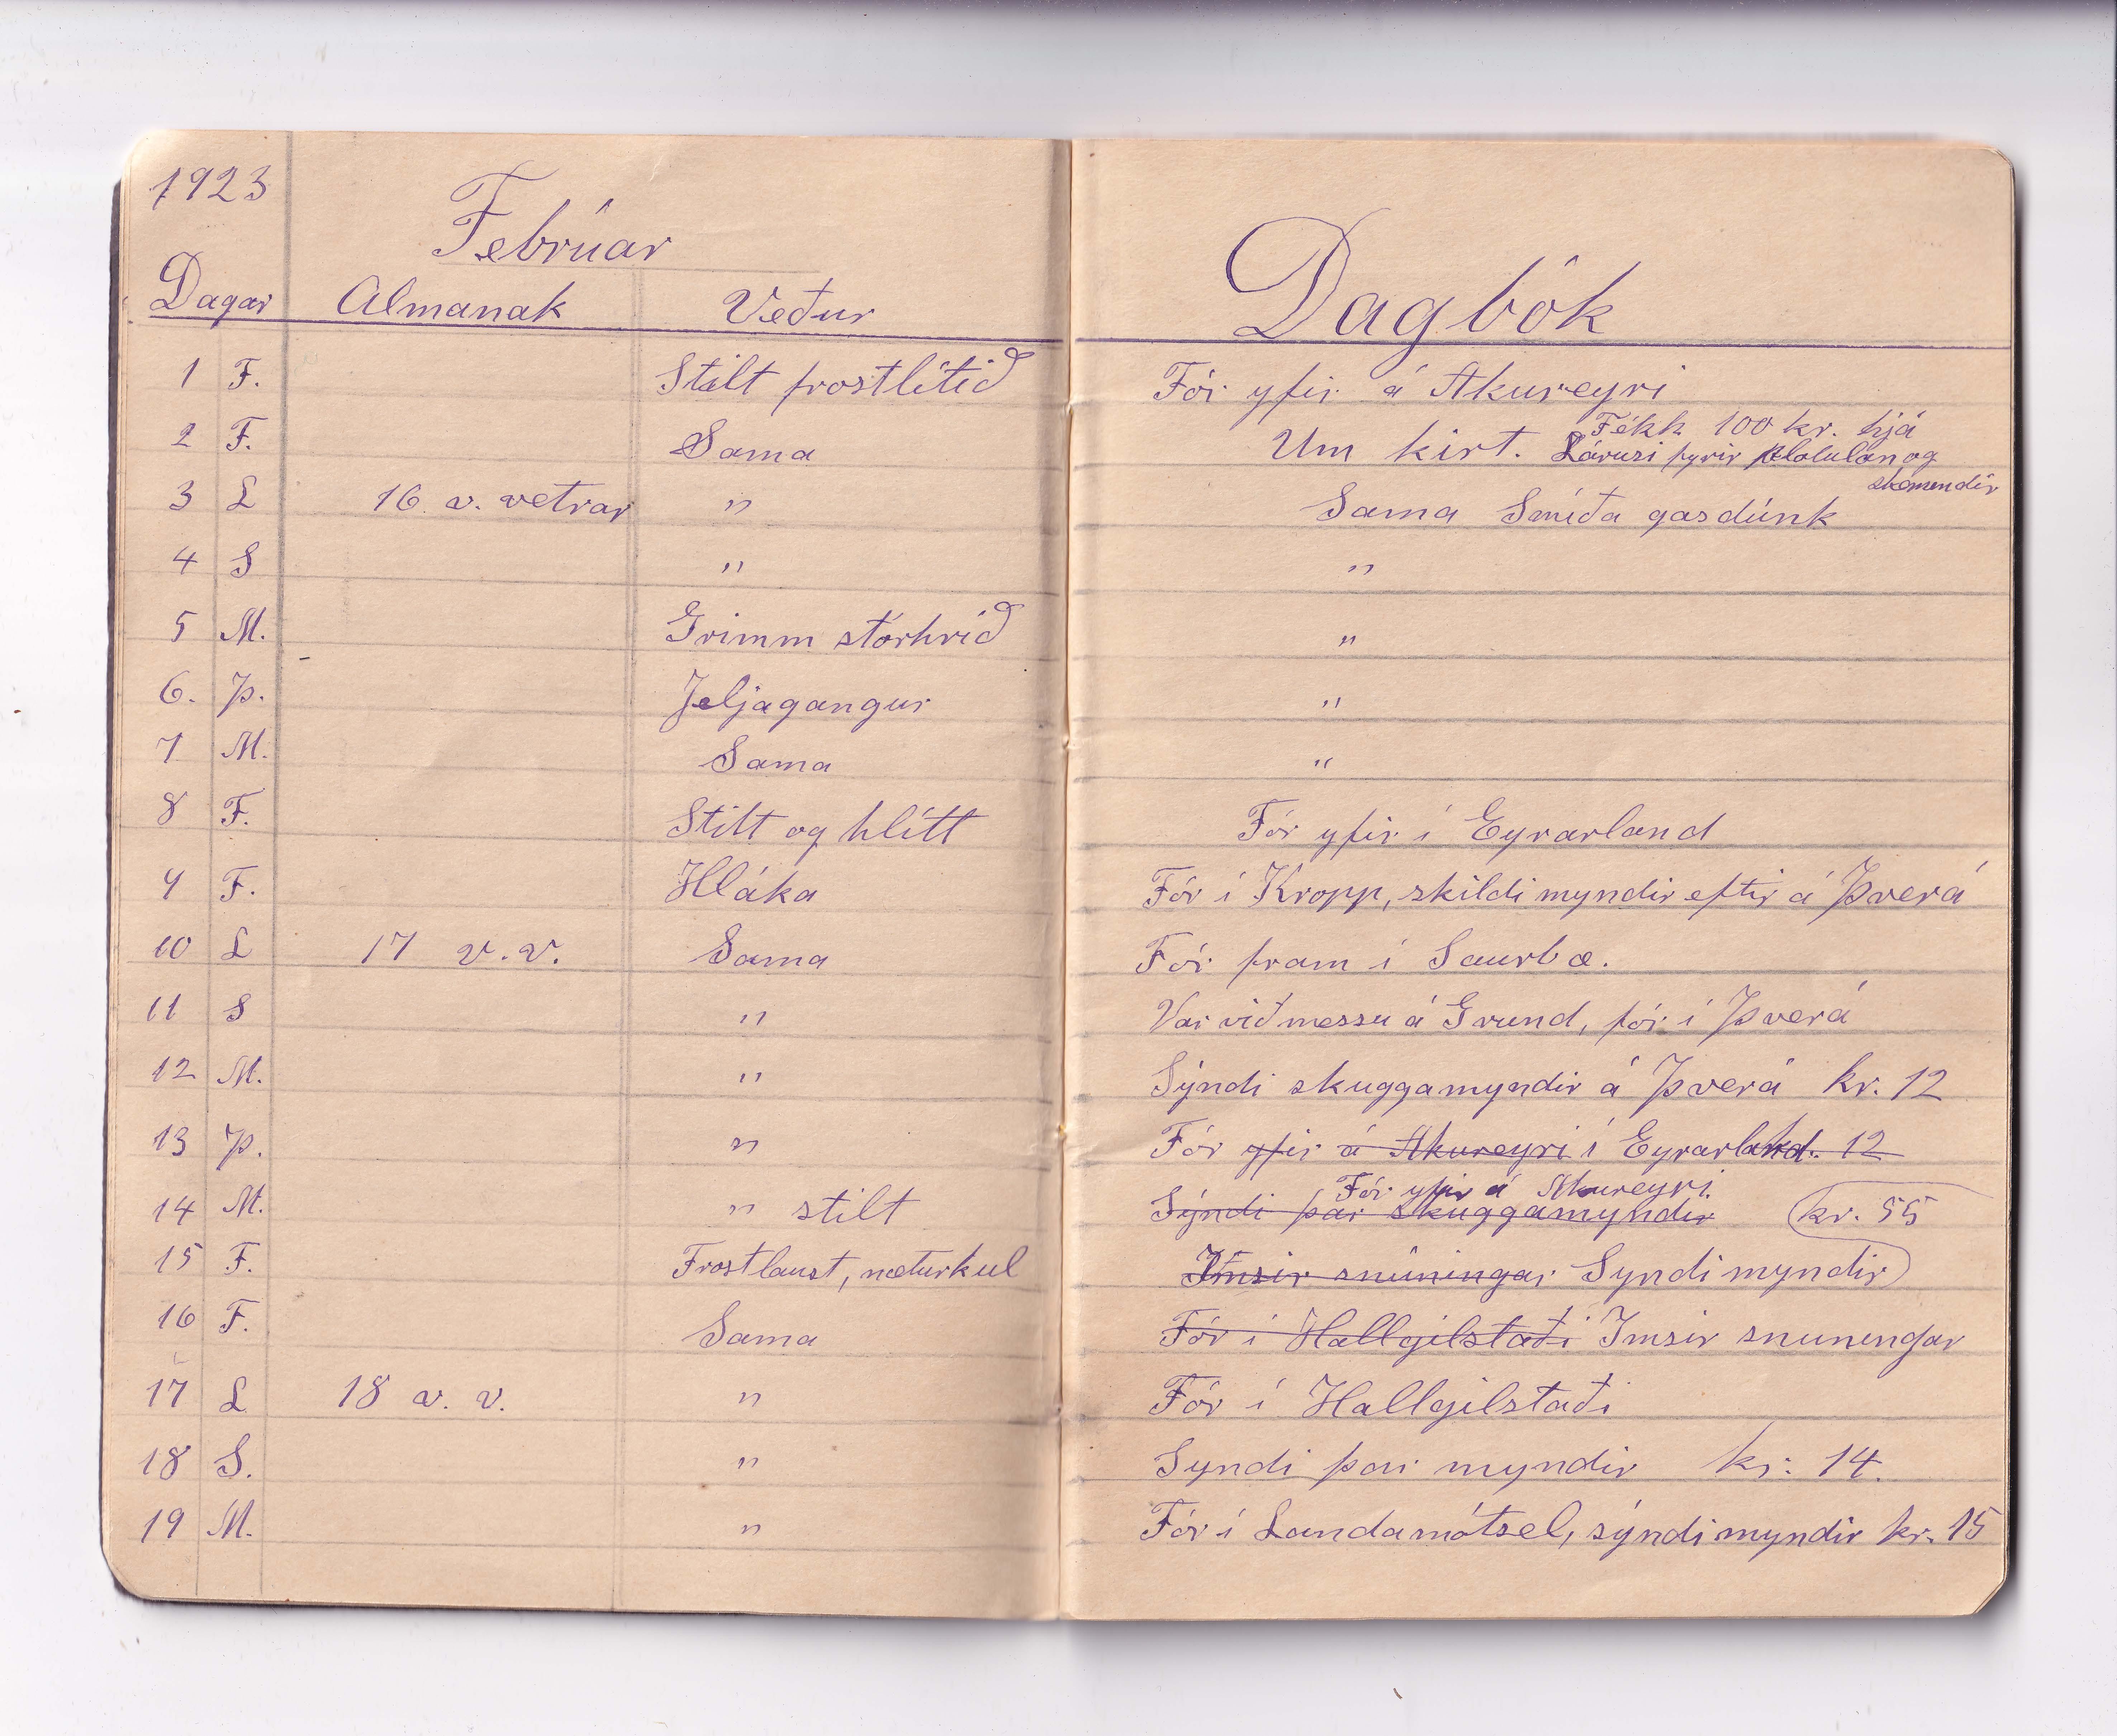 1923
Febrúar
Dagar Almanak Veður
Dagbók
1 F. Stilt frostlítið Fór yfir á Akureyri
2 F. Sama Um kirt. Fékk 100 kr. hjá
Lárusi fyrir og
skemendir
3 L 16. v. vetrar " Sama Smíða gasdúnk
4 S " "
5 M. Grimm stórhríð "
6. Þ. Jeljagangur "
7 M. Sama "
8 F. Stilt og hlítt Fór yfir í Eyrarland
9 F. Hláka Fór í Kropp, skildi myndir eftir á Þverá
10 L 17 v.v. Sama Fór fram í Saurbæ.
11 S " Var við messu á Grund, fór í Þverá
12 M. " Sýndi skuggamyndir á Þverá kr. 12
13 Þ. " Fór yfir á Akureyri í Eyrarland. 12
Fór yfir á Akureyri
14 M. " stilt Sýndi þar skuggamyndir kr. 55
15 F. Frostlaust, næturkul Ímsir snúningar Syndi myndir
16 F. Sama Fór í Hallgilstaði Imsir snuningar
17 L 18 v. v. " Fór í Hallgilstaði
18 S. " Syndi þar myndir kr. 14.
19 M. " Fór í Landamótsel, sýndi myndir kr. 15